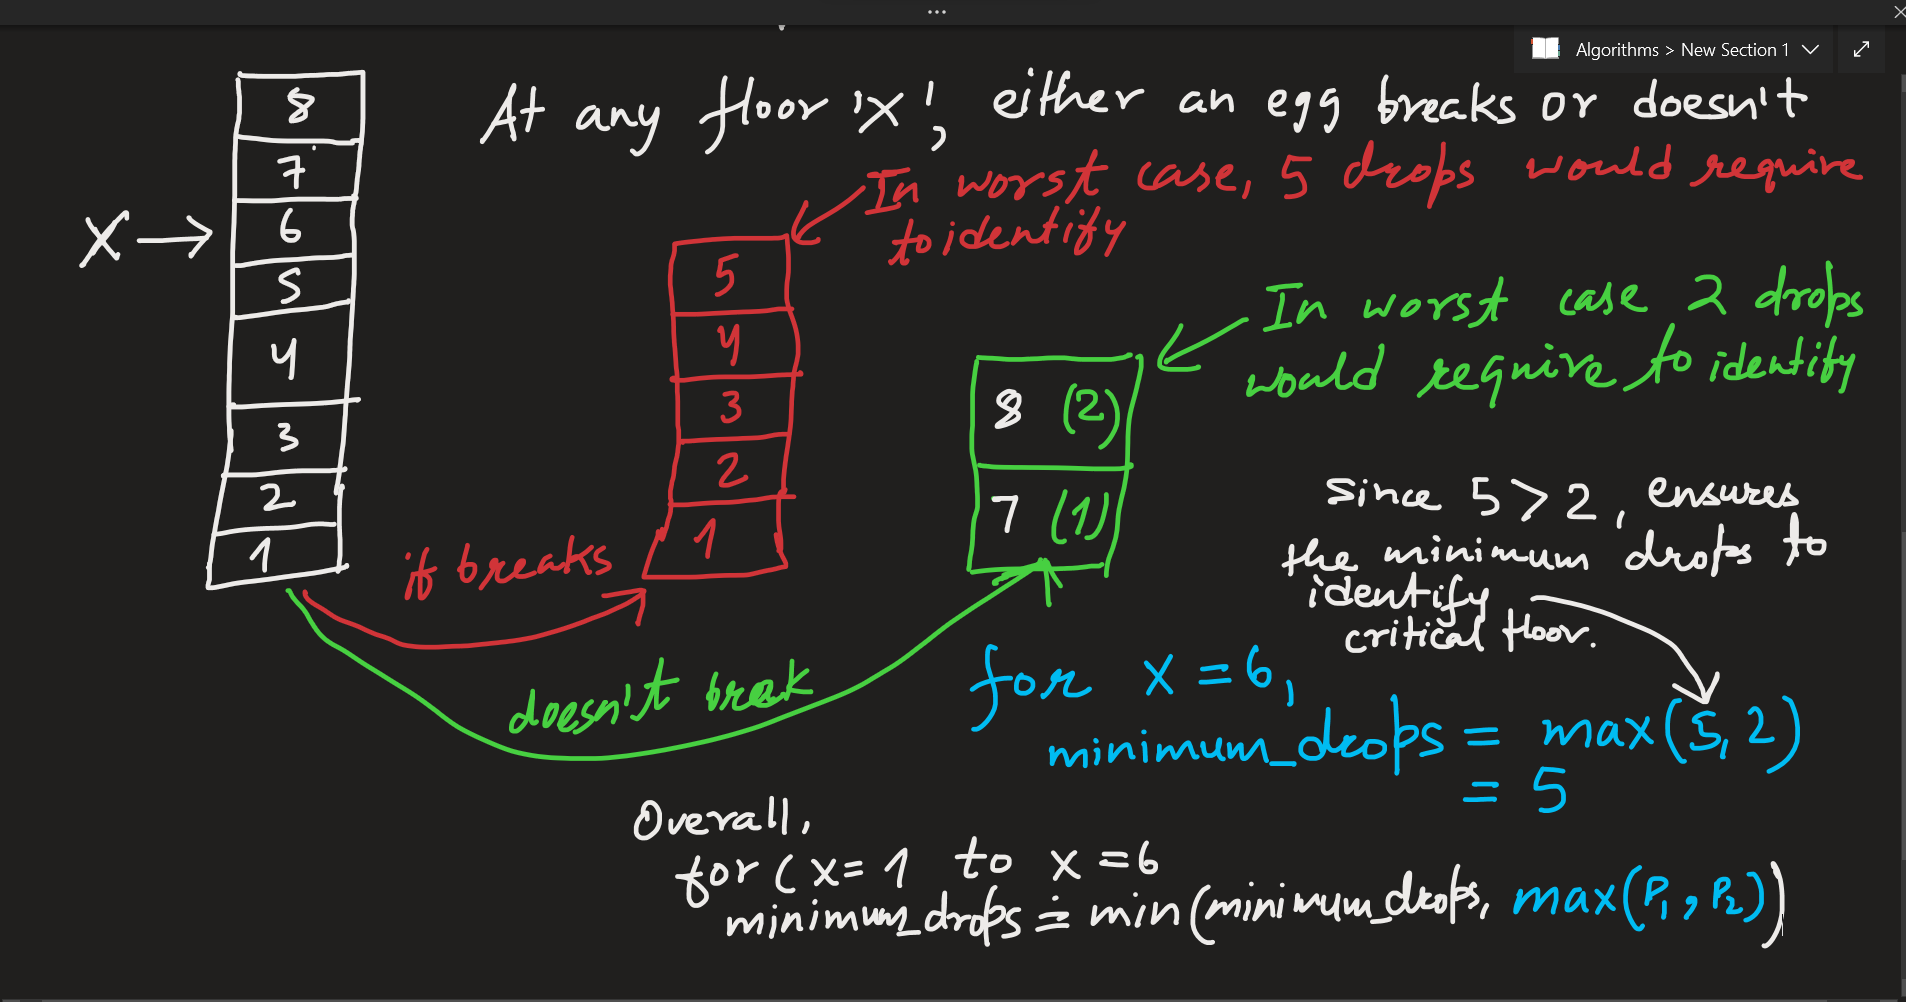 ...
Algorithms > New Section 1
At any floor 'X', either an egg breaks or doesn't
In worst case, 5 drops would require
to identify
X →
8
7
6
5
4
3
2
1
5
4
3
2
1
In worst case 2 drops
would require to identify
8 (2)
7 (1)
if breaks
doesn't break
since 5 > 2, ensures
the minimum drops to
identify
critical floor.
for x = 6,
minimum_drops = max(5, 2)
= 5
Overall,
for ( x = 1 to x = 6
minimum_drops = min(minimum_drops, max(P1, P2))